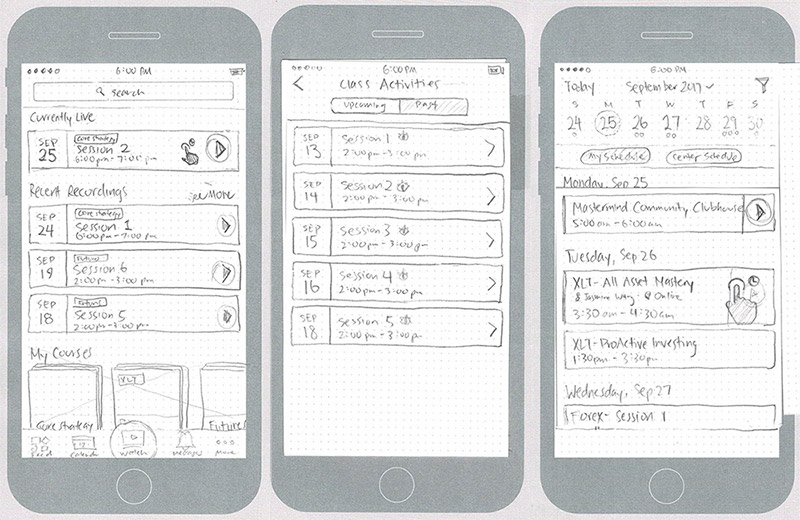 6:00 PM
Search
Currently Live
SEP
25
Core Strategy
Session 2
6:00pm - 7:05pm
Recent Recordings
More
SEP
24
Core Strategy
Session 1
6:00pm - 7:00pm
SEP
19
Futures
Session 6
2:00pm - 3:00pm
SEP
18
Futures
Session 5
2:00pm - 3:00pm
My Courses
XLT
Core Strategy
Futures
Feed
Calendar
Watch
Messages
More
6:00 PM
Class Activities
Upcoming
Past
SEP
13
Session 1
2:00pm - 3:00pm
SEP
14
Session 2
2:00pm - 3:00pm
SEP
15
Session 3
2:00pm - 3:00pm
SEP
16
Session 4
2:00pm - 3:00pm
SEP
18
Session 5
2:00pm - 3:00pm
6:00 PM
Today September 2017
S M T W T F S
24 25 26 27 28 29 30
My Schedule
Center Schedule
Monday, Sep 25
Mastermind Community Clubhouse
5:00am - 6:00am
Tuesday, Sep 26
XLT - All Asset Mastery
Online
3:30am - 4:30am
XLT - ProActive Investing
1:30pm - 3:30pm
Wednesday, Sep 27
Forex - Session 1